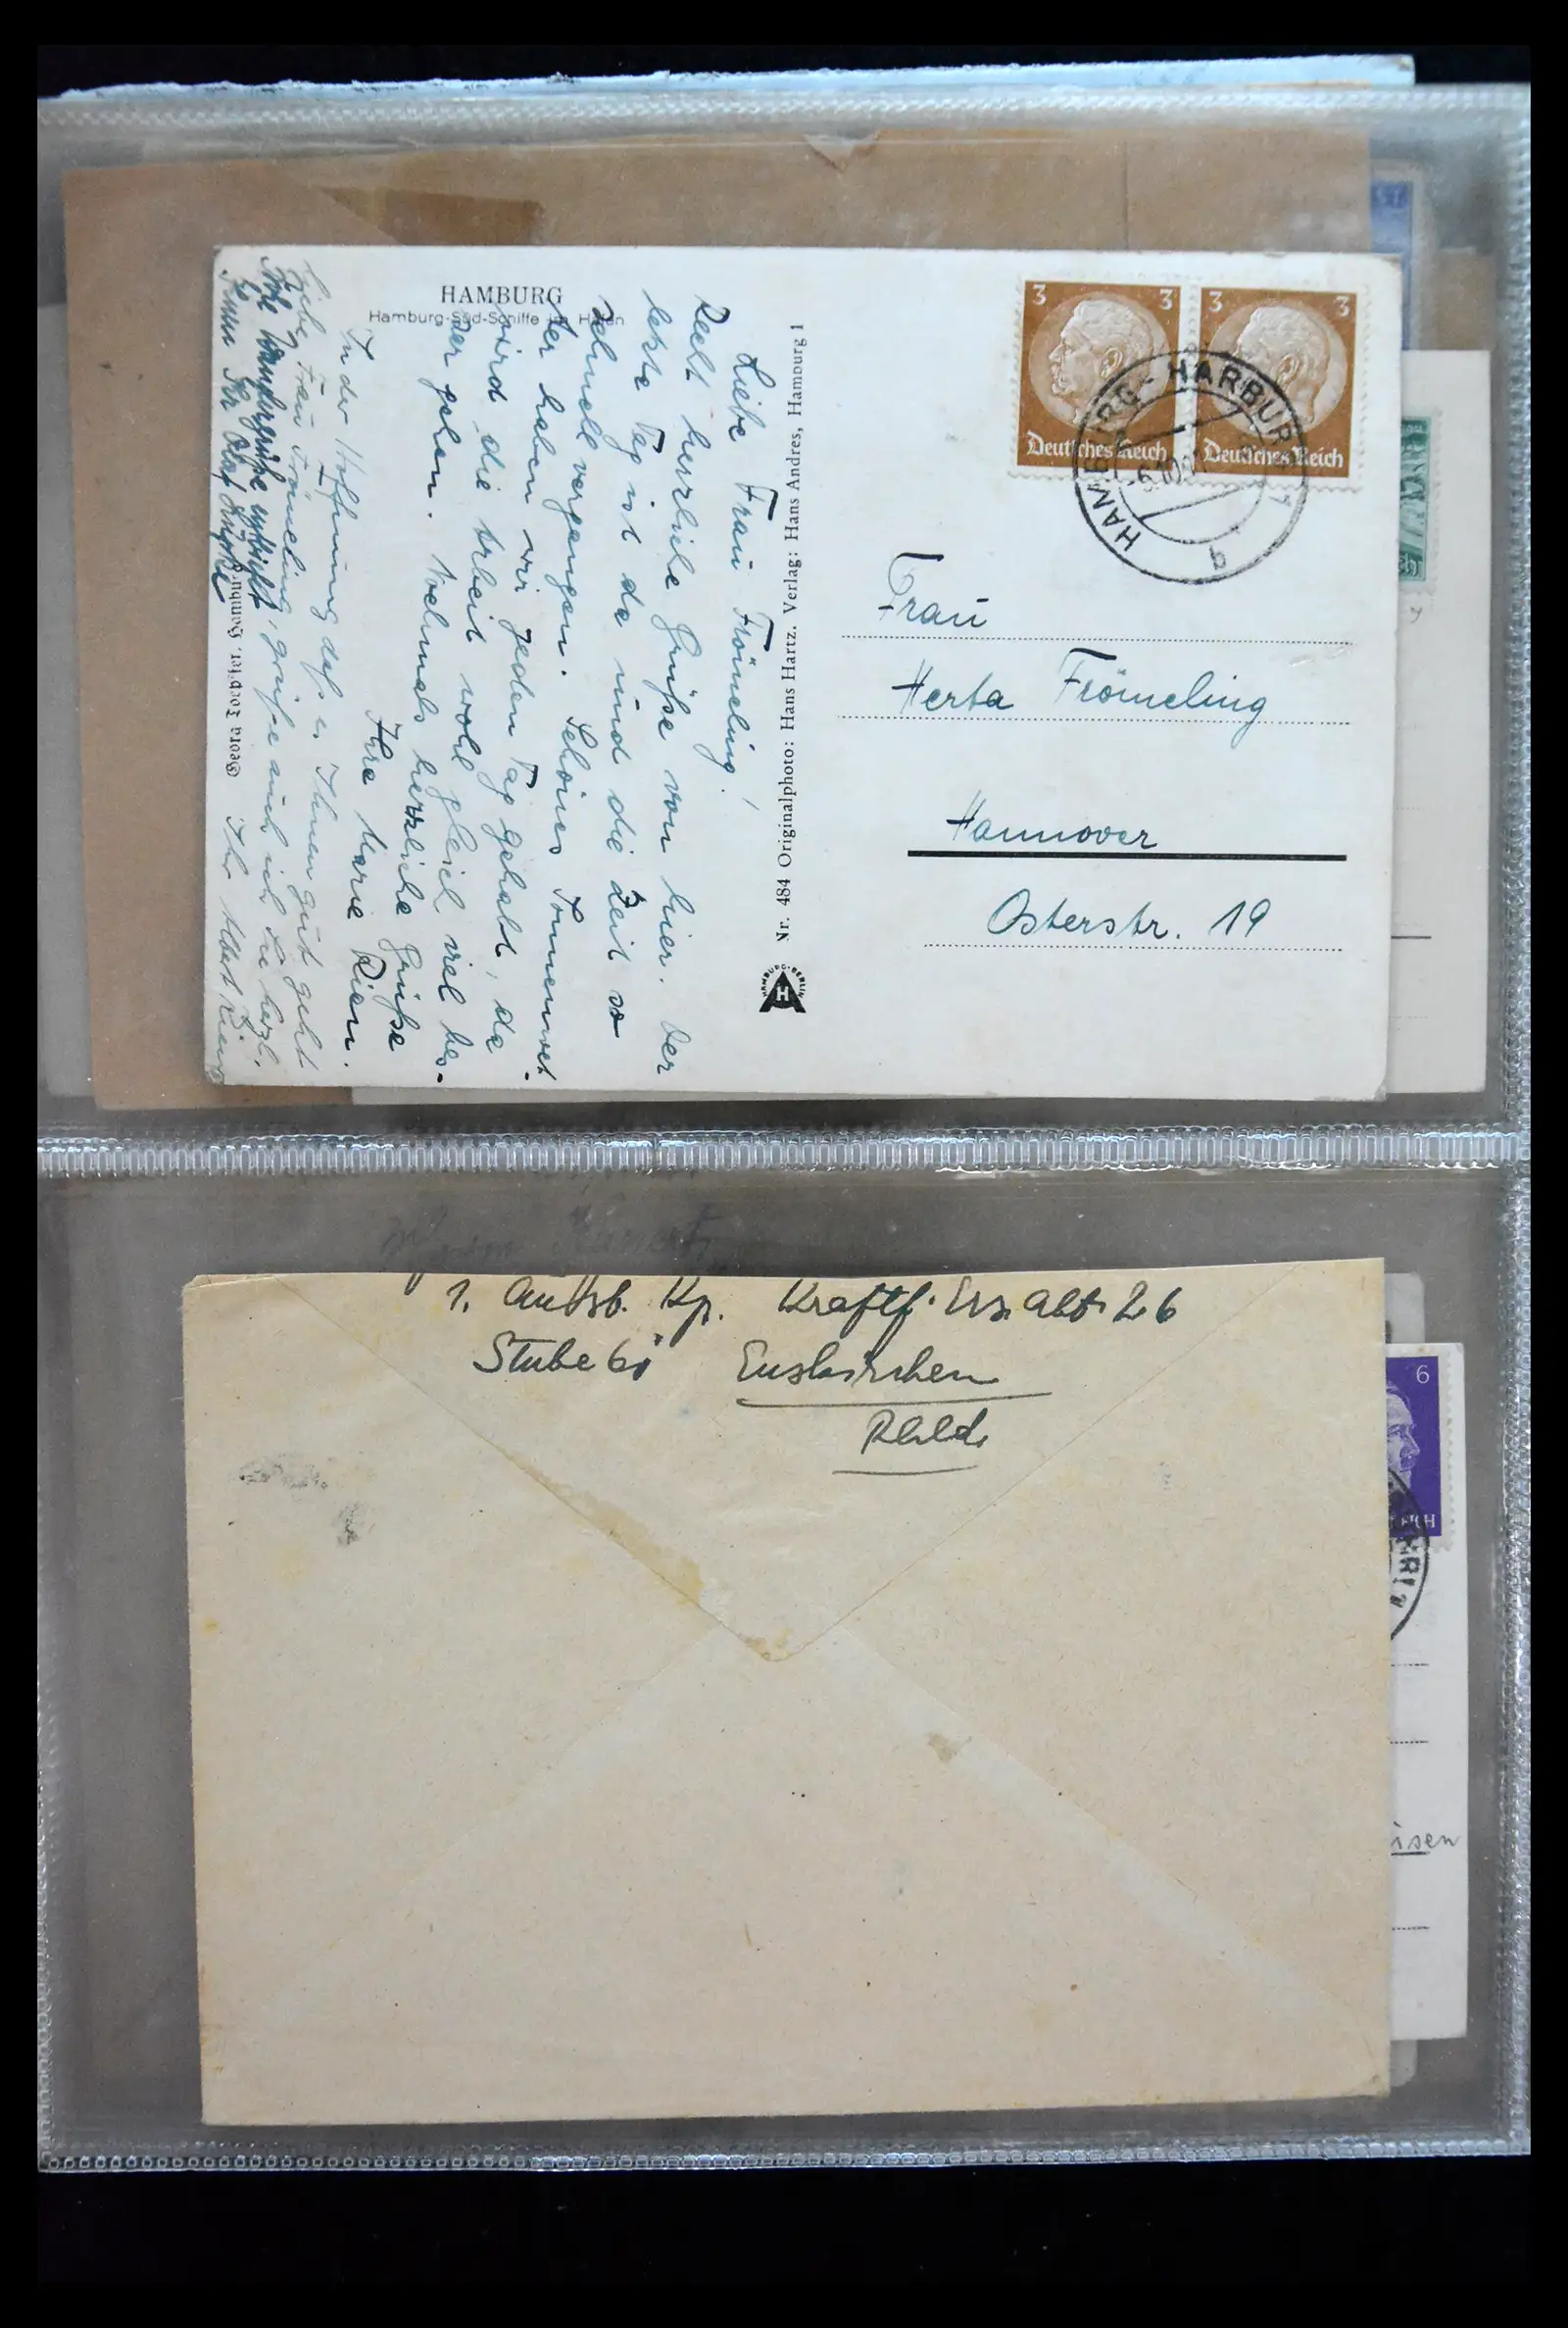 HAMBURG
Hamburg-Süd-Schiffe im Hafen
Liebe Frau Frömeling!
Recht herzliche Grüße von hier. Der
letzte Tag ist da und die Zeit so
schnell vergangen. Schönes Sonnenwet-
ter haben wir jeden Tag gehabt, da
wird die Arbeit wohl gleich viel bes-
ser gehen. Nochmals herzliche Grüße
Ihre Marie Rien.
In der Hoffnung daß es Ihnen gut geht
liebe Frau Frömeling, grüße auch ich Sie herzl.
Ihr Albert
Ihnen Ihr Olaf
Georg Toepfer, Hamburg
Nr. 484 Originalphoto: Hans Hartz. Verlag: Hans Andres, Hamburg 1
HAMBURG-BERLIN
H
3 3
Deutsches Reich
3 3
Deutsches Reich
HAMBURG-HARBURG 1
g
Frau
Herta Frömeling
Hannover
Osterstr. 19
1. Ausb. Kp. Kraftf. Ers. Abt. 26
Stube 61 Euskirchen
Rhld.
6
ERLI
isen